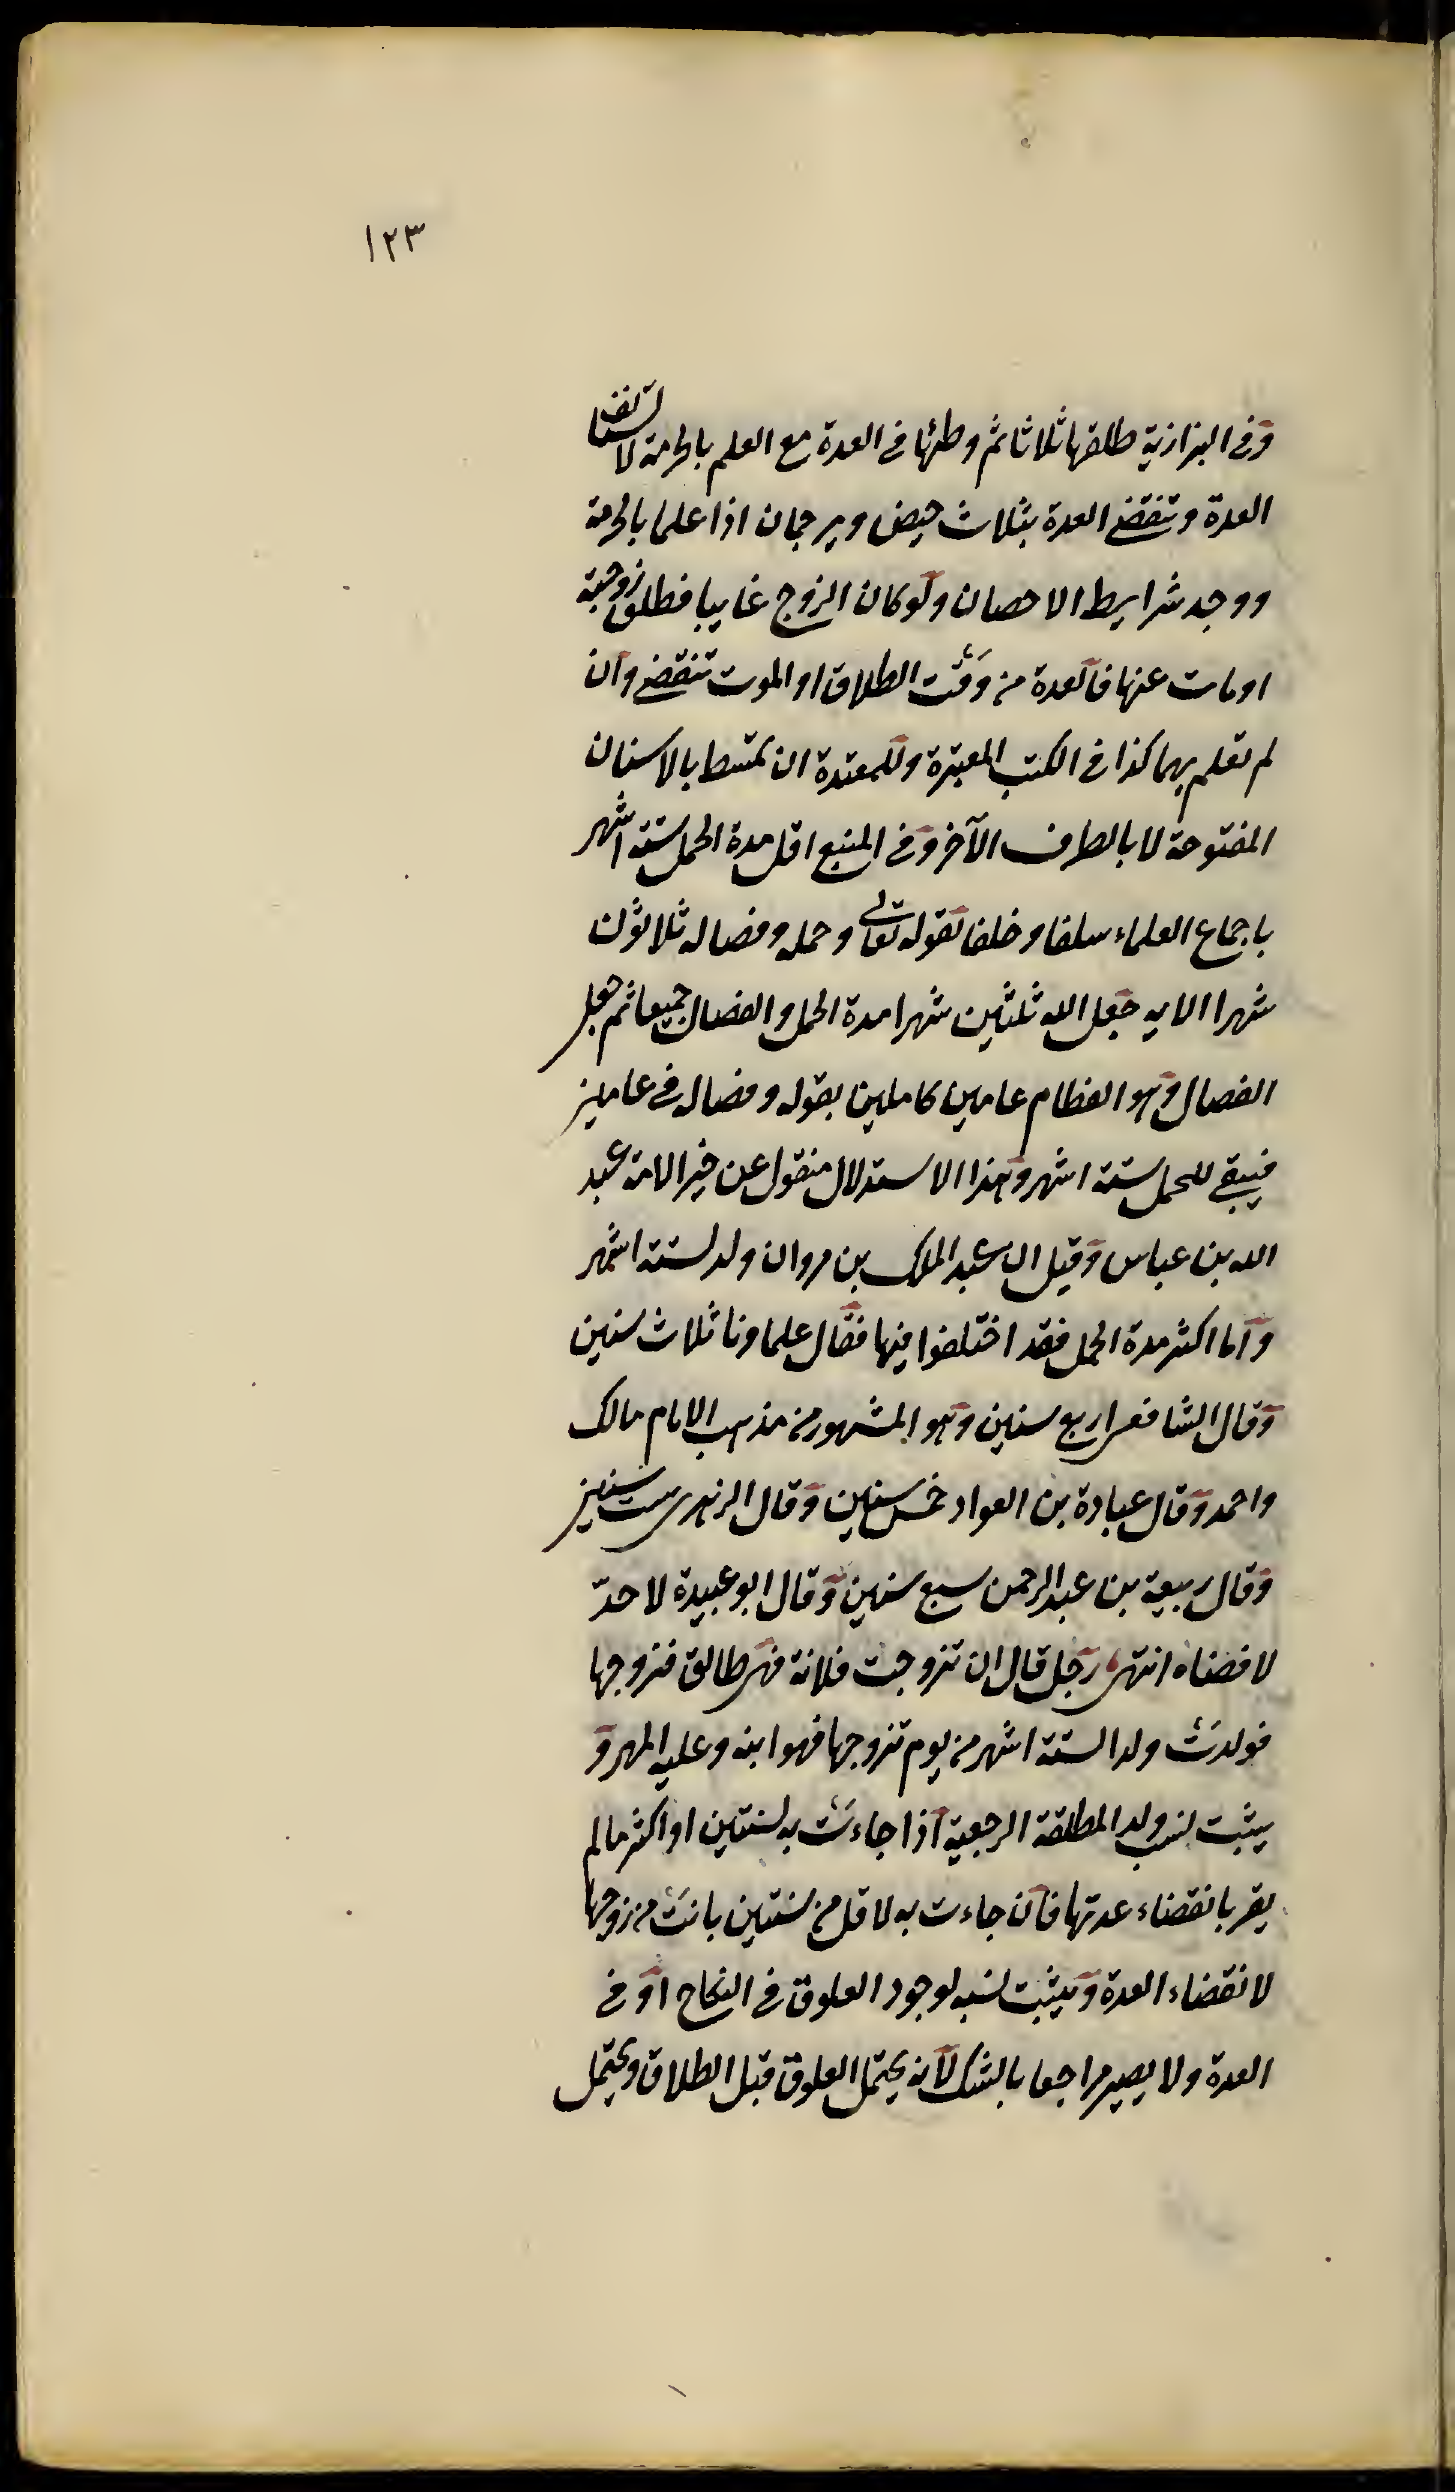 ١٢٣
وفى البزازية طلقها ثلاثا ثم وطئها فى العدة مع العلم بالحرمة لا تستانف
العدة وتنقضى العدة بثلاث حيض ويرجمان اذا علما بالحرمة
ووجد شرايط الاحصان ولو كان الزوج غايبا فطلق زوجته
او مات عنها فالعدة من وقت الطلاق او الموت تنقضى وان
لم تعلم بهما كذا فى الكتب المعتبرة وللمعتدة ان تمتشط بالاسنان
المفتوحة لا بالطرف الآخر وفى المنبع اقل مدة الحمل ستة اشهر
باجماع العلماء سلفا وخلفا لقوله تعالى وحمله وفصاله ثلاثون
شهرا الايه جعل الله ثلثين شهرا مدة الحمل والفصال جميعا ثم جعل
الفصال وهو الفطام عامين كاملين بقوله وفصاله فى عامين
فيبقى للحمل ستة اشهر وهذا الاستدلال منقول عن خير الامة عبد
الله بن عباس وقيل ان عبد الملك بن مروان ولد لستة اشهر
واما اكثر مدة الحمل فقد اختلفوا فيها فقال علماونا ثلاث سنين
وقال الشافعى اربع سنين وهو المشهور من مذهب الامام مالك
واحمد وقال عبادة بن العواد خمس سنين وقال الزهرى ست سنين
وقال ربيعة بن عبد الرحمن سبع سنين وقال ابو عبيدة لا حدّ
لاقصاه انتهى رجل قال ان تزوجت فلانة فهى طالق فتزوجها
فولدت ولدا لستة اشهر من يوم تزوجها فهو ابنه وعليه المهر و
يثبت نسب ولد المطلقة الرجعية اذا جاءت به لسنتين او اكثر ما لم
يقر بانقضاء عدتها فان جاءت به لاقل من سنتين بانت من زوجها
لانقضاء العدة ويثبت نسبه لوجود العلوق فى النكاح او فى
العدة ولا يصير مراجعا بالشك لانه يحتمل العلوق قبل الطلاق ويحتمل